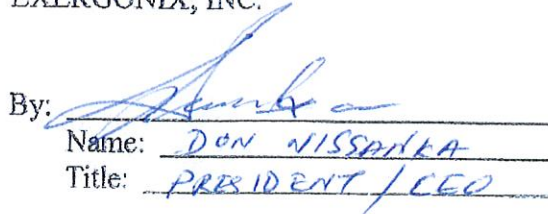 EXERGONIX, INC.
By:
Name: DON NISSANKA
Title: PRESIDENT / CEO